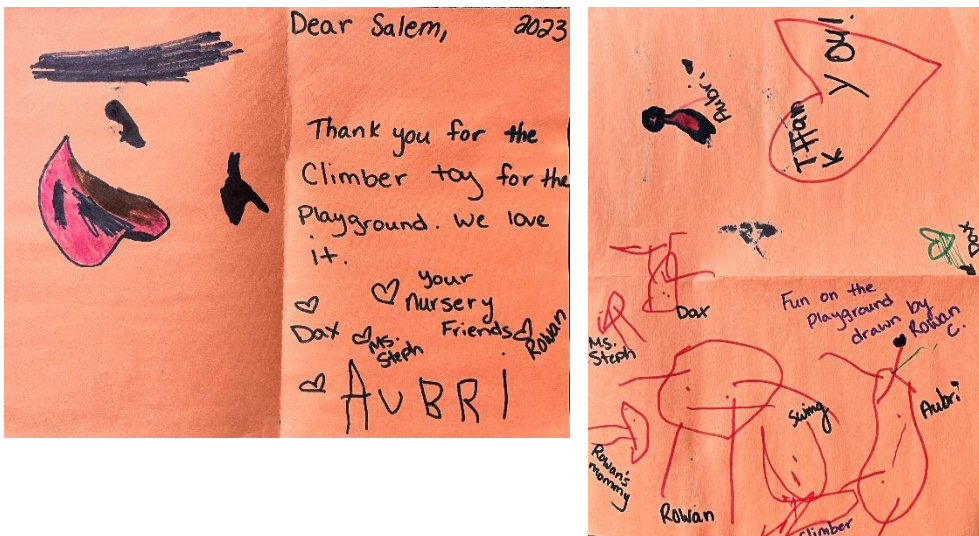 Dear Salem, 2023
Thank you for the
Climber toy for the
Playground. We love
it.
Your
Nursery
Friends
Dax
Ms.
Steph
Rowan
AUBRI
THan
K
you!
Aubri
Dax
Dax
Ms.
Steph
Fun on the
Playground
drawn by
Rowan
C.
Swing
Aubri
Rowan's
Mommy
Rowan
Climber